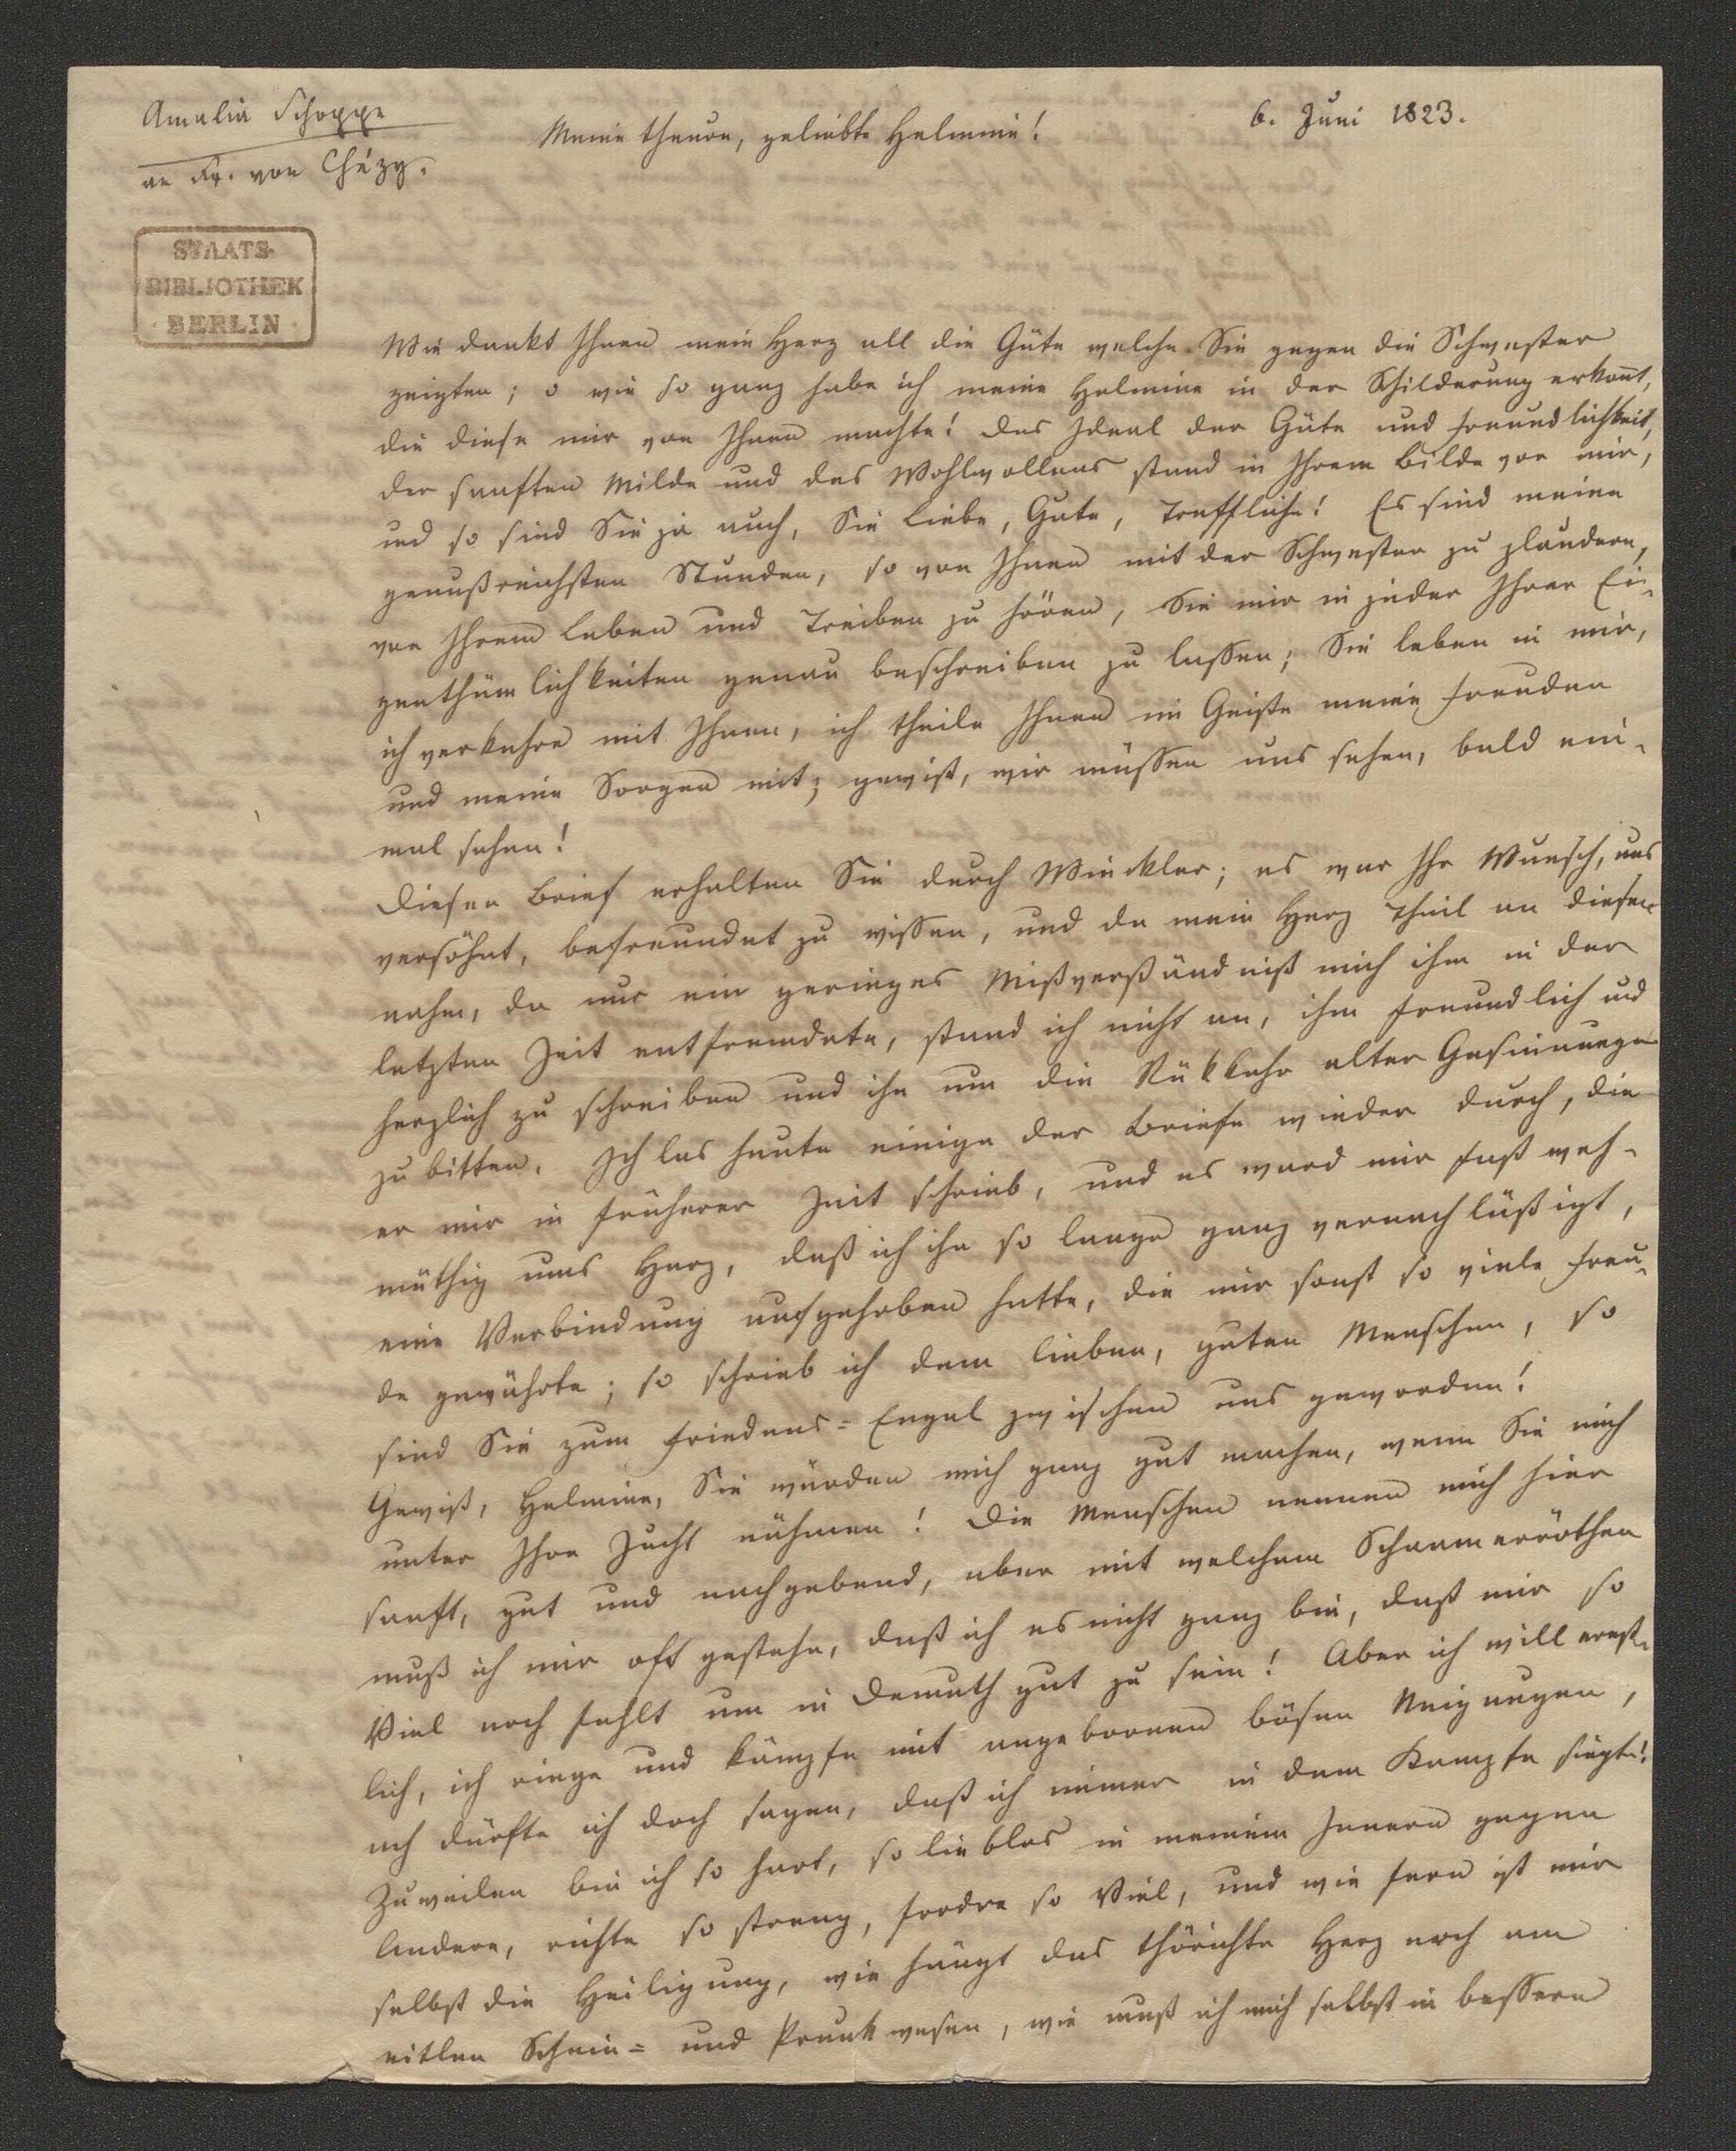 Amalia Schoppe
an Fr. von Chézy.
6. Juni 1823.
Meine theure, geliebte Helmine!
STAATS-
BIBLIOTHEK
· BERLIN ·
Wie dankt Ihnen mein Herz all die Güte welche Sie gegen die Schwester
zeigten; o wie so ganz habe ich meine Helmine in der Schilderung erkant,
die diese mir von Ihnen machte! Das Ideal der Güte und Freundlichkeit,
der sanften Milde und des Wohlwollens stand in Ihrem Bilde vor mir,
und so sind Sie ja auch, Sie Liebe, Gute, Treffliche! Es sind meine
genußreichsten Stunden, so von Ihnen mit der Schwester zu plaudern,
von Ihrem Leben und Treiben zu hören, Sie mir in jeder Ihrer Ei-
genthümlichkeiten genau beschreiben zu lassen; Sie leben in mir,
ich verkehre mit Ihnen, ich theile Ihnen im Geiste meine Freuden
und meine Sorgen mit; gewiß, wir müssen uns sehen, bald ein-
mal sehen!
Diesen Brief erhalten Sie durch Winckler; es war Ihr Wunsch, uns
versöhnt, befreundet zu wissen, und da mein Herz Theil an diesem
nahm, da nur ein geringes Mißverständniß mich ihm in der
letzten Zeit entfremdete, stand ich nicht an, ihm freundlich und
herzlich zu schreiben und ihn um die Rükkehr alter Gesinnungen
zu bitten. Ich las heute einige der Briefe wieder durch, die
er mir in früherer Zeit schrieb, und es ward mir fast weh-
müthig ums Herz, daß ich ihn so lange ganz vernachläßigt,
eine Verbindung aufgehoben hatte, die mir sonst so viele Freu-
de gewährte; so schrieb ich dem lieben, guten Menschen, so
sind Sie zum Friedens=Engel zwischen uns geworden!
Gewiß, Helmine, Sie würden mich ganz gut machen, wenn Sie mich
unter Ihre Zucht nähmen! Die Menschen nennen mich hier
sanft, gut und nachgebend, aber mit welchem Schaamerröthen
muß ich mir oft gestehn, daß ich es nicht ganz bin, daß mir so
Viel noch fehlt um in Demuth gut zu sein! Aber ich will ernst-
lich, ich ringe und kämpfe mit angebornen bösen Neigungen,
ach dürfte ich doch sagen, daß ich immer in dem Kampfe siegte!
Zuweilen bin ich so hart, so lieblos in meinem Innern gegen
Andere, richte so streng, fordre so Viel, und wie fern ist mir
selbst die Heiligung, wie hängt das thörichte Herz noch am
eitlen Schein= und Prunkwesen, wie muß ich mich selbst in bessern